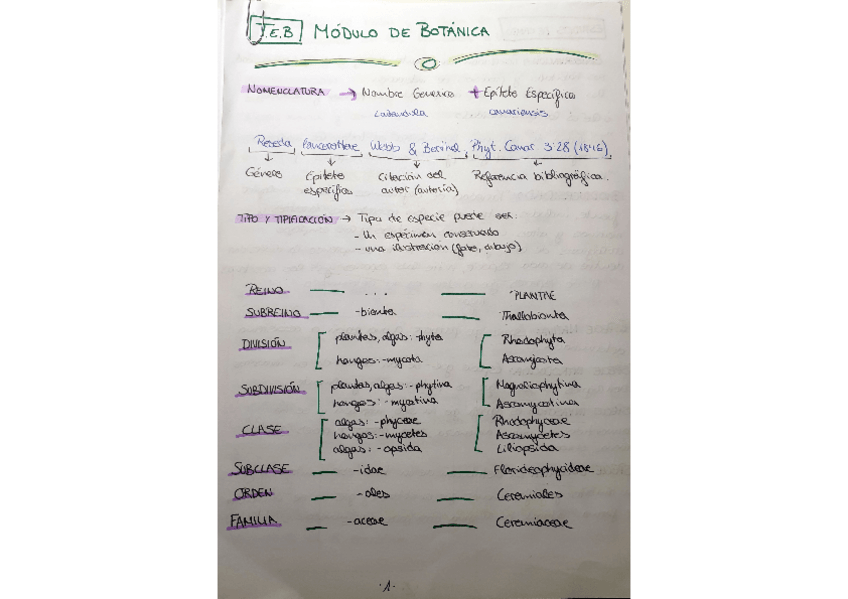 T.E.B MÓDULO DE BOTÁNICA
NOMENCLATURA → Nombre Genérico + Epíteto Específico
Lavandula canariensis
Reseda lancerottae Webb & Berthel. Phyt. Canar 3:28 (1846)
Género Epíteto específico Citación del autor (autoría) Referencia bibliográfica.
TIPO Y TIPIFICACIÓN → Tipo de especie puede ser:
- Un espécimen conservado
- una ilustración (foto, dibujo)
REINO — ... — PLANTAE
SUBREINO — -bionta — Thallobionta
DIVISIÓN [ plantas, algas: -phyta [ Rhodophyta
hongos: -mycota Ascomycota
SUBDIVISIÓN [ plantas, algas: -phytina [ Magnoliophytina
hongos: -mycotina Ascomycotina
CLASE [ algas: -phyceae [ Rhodophyceae
hongos: -mycetes Ascomycetes
algas: -opsida Liliopsida
SUBCLASE — -idae — Florideophycideae
ORDEN — -ales — Ceramiales
FAMILIA — -aceae — Ceramiaceae
·1·